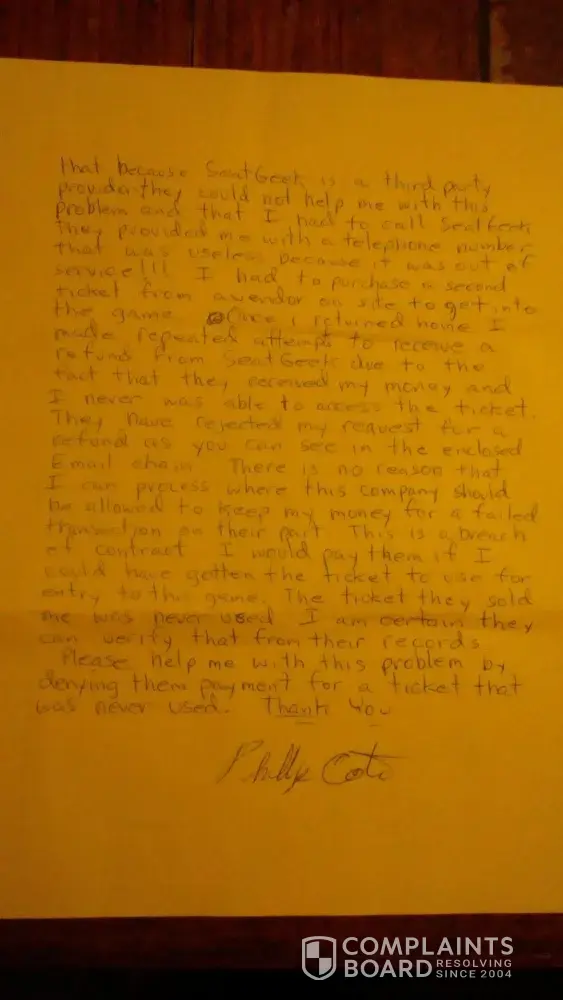 that because SeatGeek is a third party
provider they could not help me with this
problem and that I had to call SeatGeek
they provided me with a telephone number
that was useless because it was out of
service!!! I had to purchase a second
ticket from a vendor on site to get into
the game. Once I returned home I
made repeated attempts to receive a
refund from SeatGeek due to the
fact that they received my money and
I never was able to access the ticket.
They have rejected my request for a
refund as you can see in the enclosed
Email chain. There is no reason that
I can process where this company should
be allowed to keep my money for a failed
transaction on their part. This is a breach
of contract. I would pay them if I
could have gotten the ticket to use for
entry to the game. The ticket they sold
me was never used. I am certain they
can verify that from their records.
Please help me with this problem by
denying them payment for a ticket that
was never used. Thank You
COMPLAINTS
BOARD RESOLVING
SINCE 2004